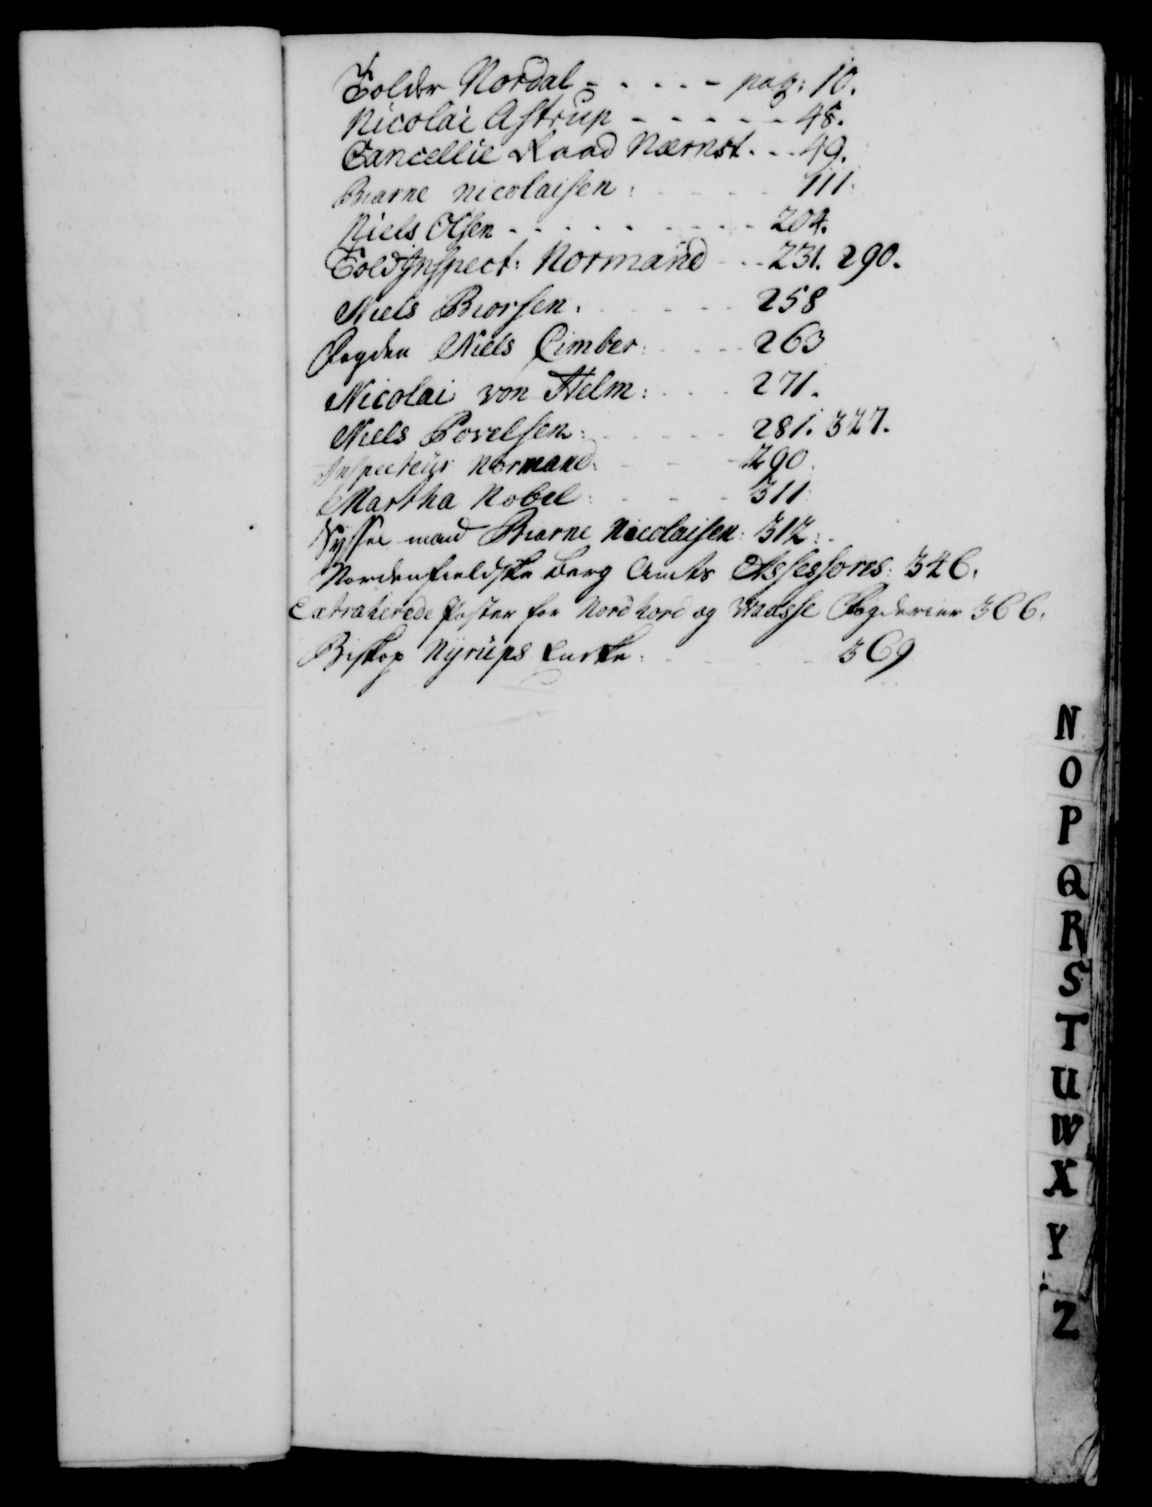 Tolder Nordal - - - - - pag: 10.
Nicolai Astrup - - - - - 48.
Cancellie Raad Nærnst. - - 49.
Biarne Nicolaisen: - - - - 111.
Niels Olsen - - - - - - - - - 204.
Told Inspect: Normand - - 231. 290.
Niels Biorsen. - - - - 258
Fogden Niels Cimber: - - - 263
Nicolai von Helm: - - - 271.
Niels Povelsen: - - - - 281. 327.
Inspecteur Normand: - - - 290.
Martha Nobel: - - - 311.
Sysselmand Biarne Nicolaisen: 312.
Nordenfieldske Berg Amts Assessores: 346.
Extraherede Poster for Nordhord og Waasse Fogderier 366.
Biskop Nyrups Enke: - - - 369
N
O
P
Q
R
S
T
U
W
X
Y
Z